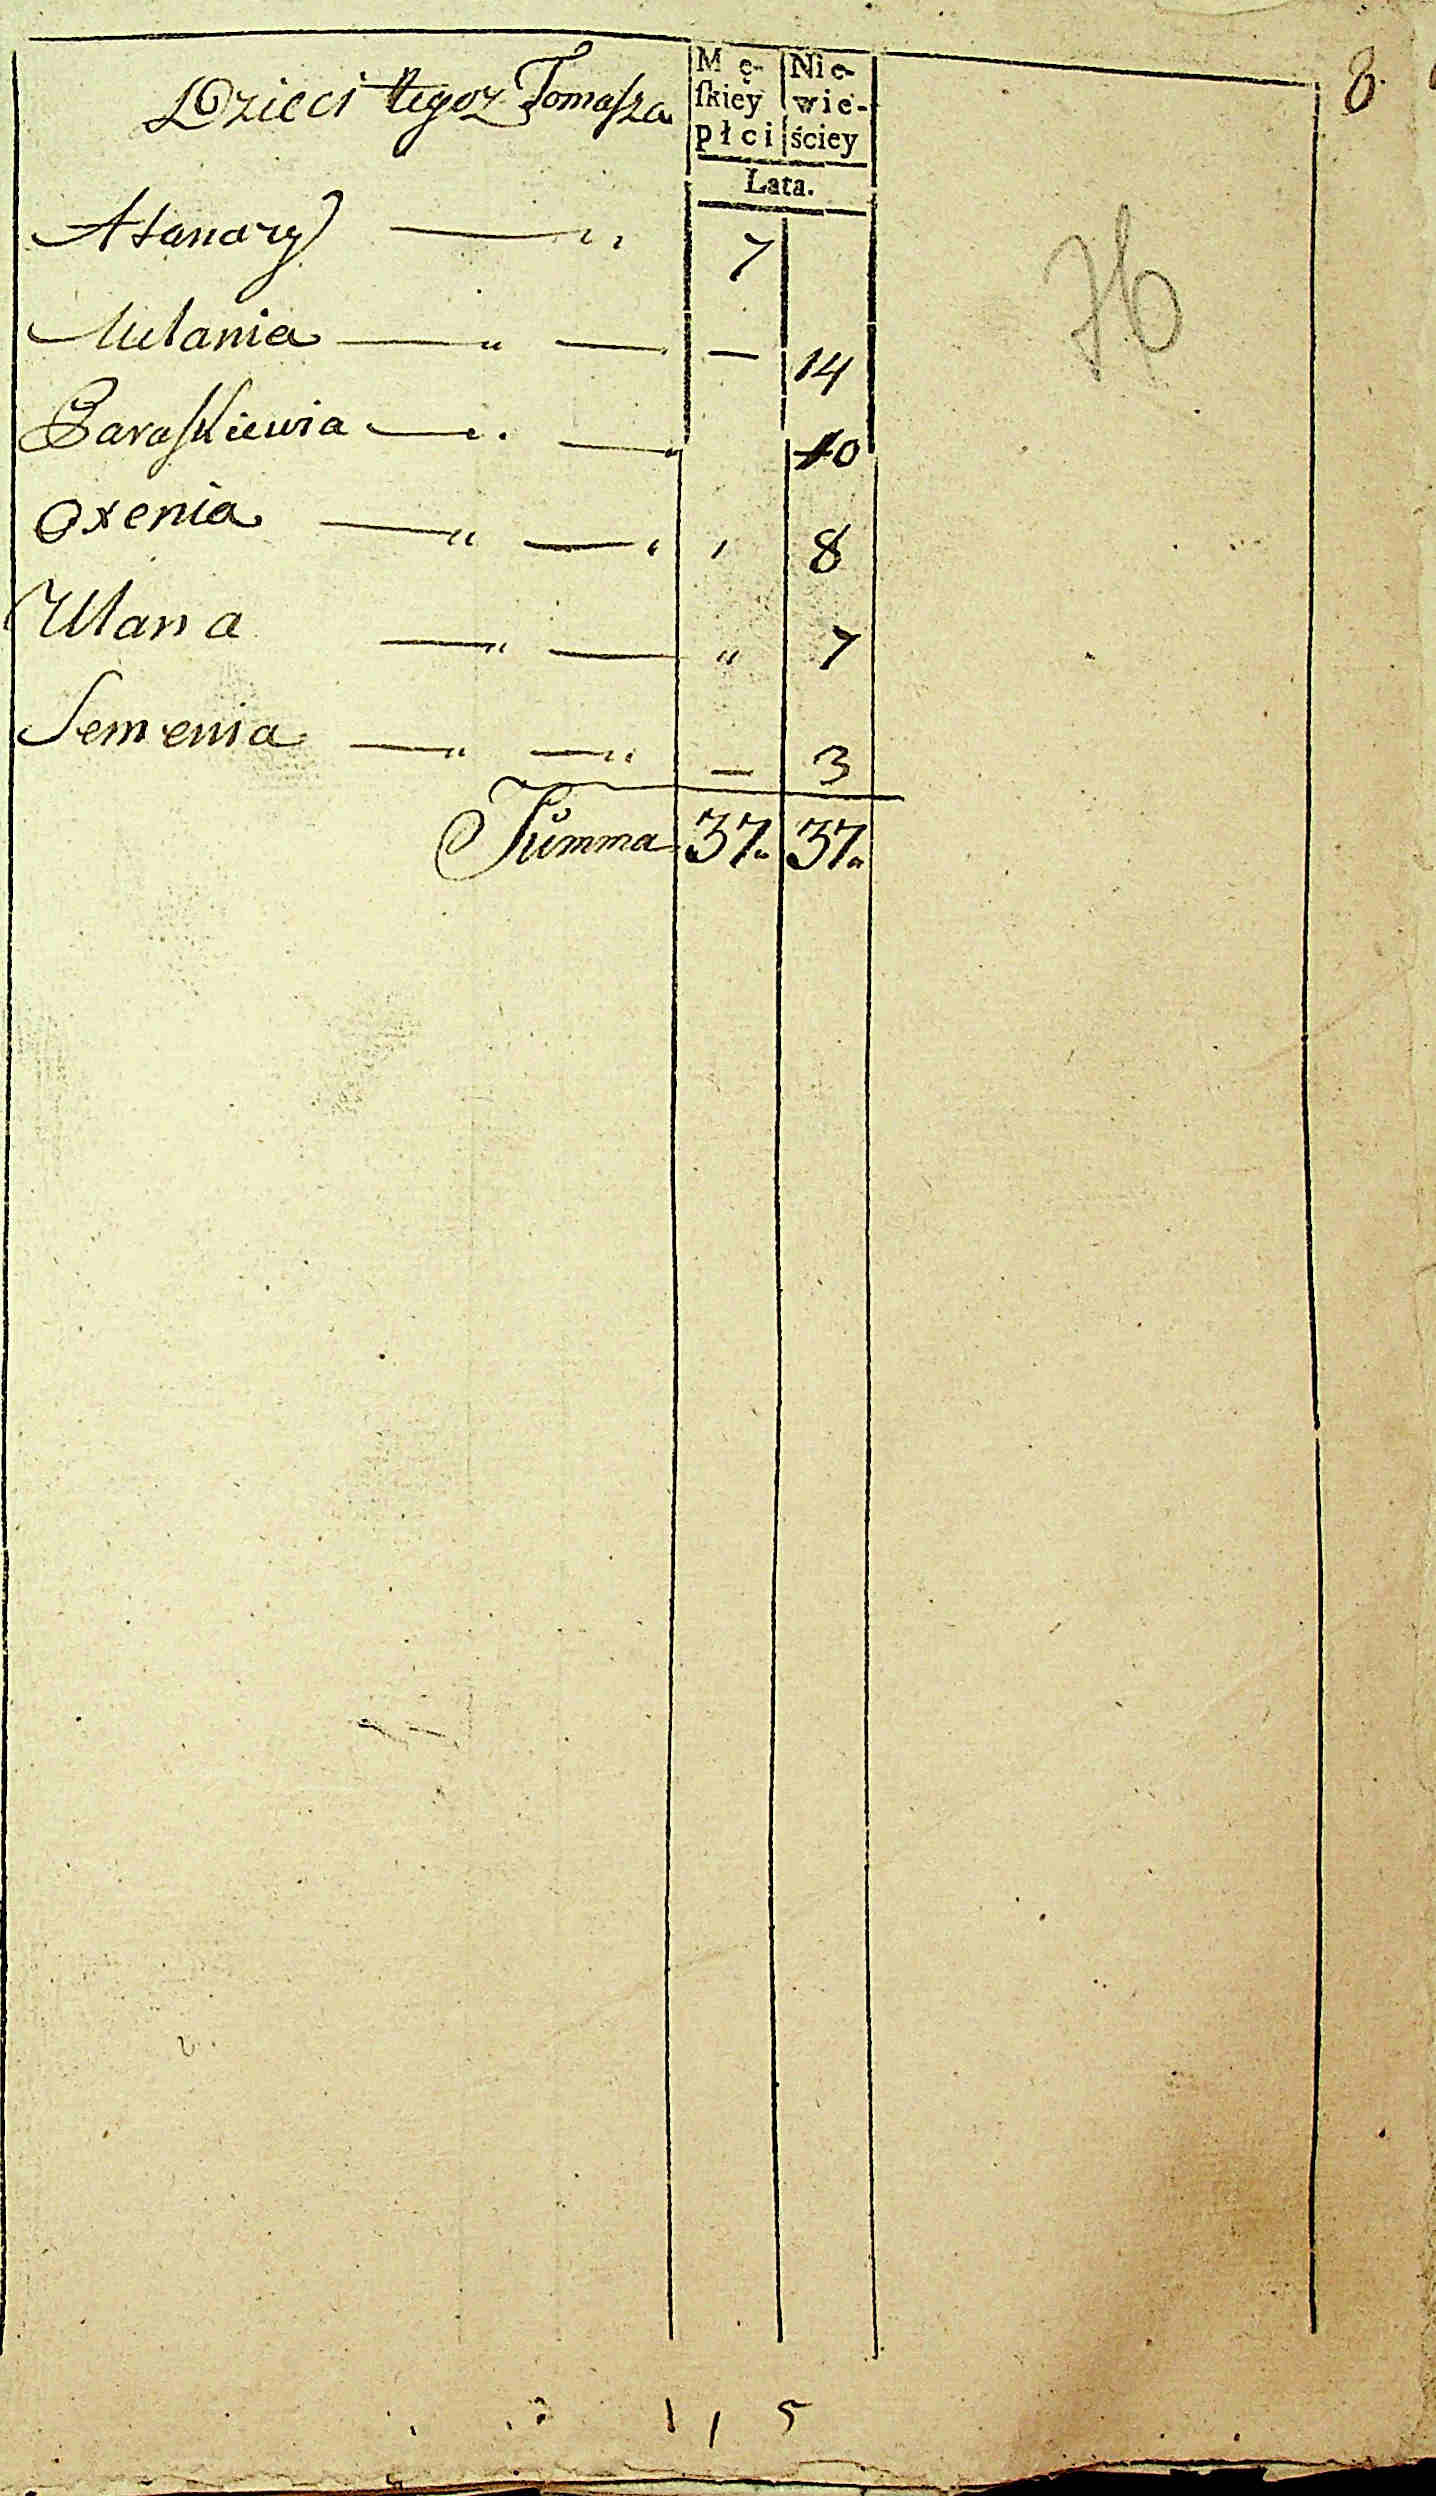 Dzieci tegoz Tomasza
Mę- Nie-
ſkiey wie-
płci ściey
Lata.
8.
Atanazy 7
Melania — 14
Paraskiewia 10
Oxenia 8
Ulana " 7
Semenia — 3
Summa 37. 37.
1 1 5